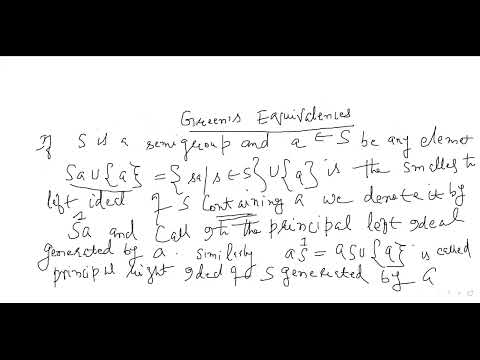 Green's Equivalences
If S is a semigroup and a ∈ S be any elemet
Sa∪{a} = {sa | s ∈ S}∪{a} is the smallest
left ideal of S containing a we denote it by
S¹a and call it the principal left ideal
generated by a. similarly aS¹ = aS∪{a} is called
principal right ideal of S generated by a